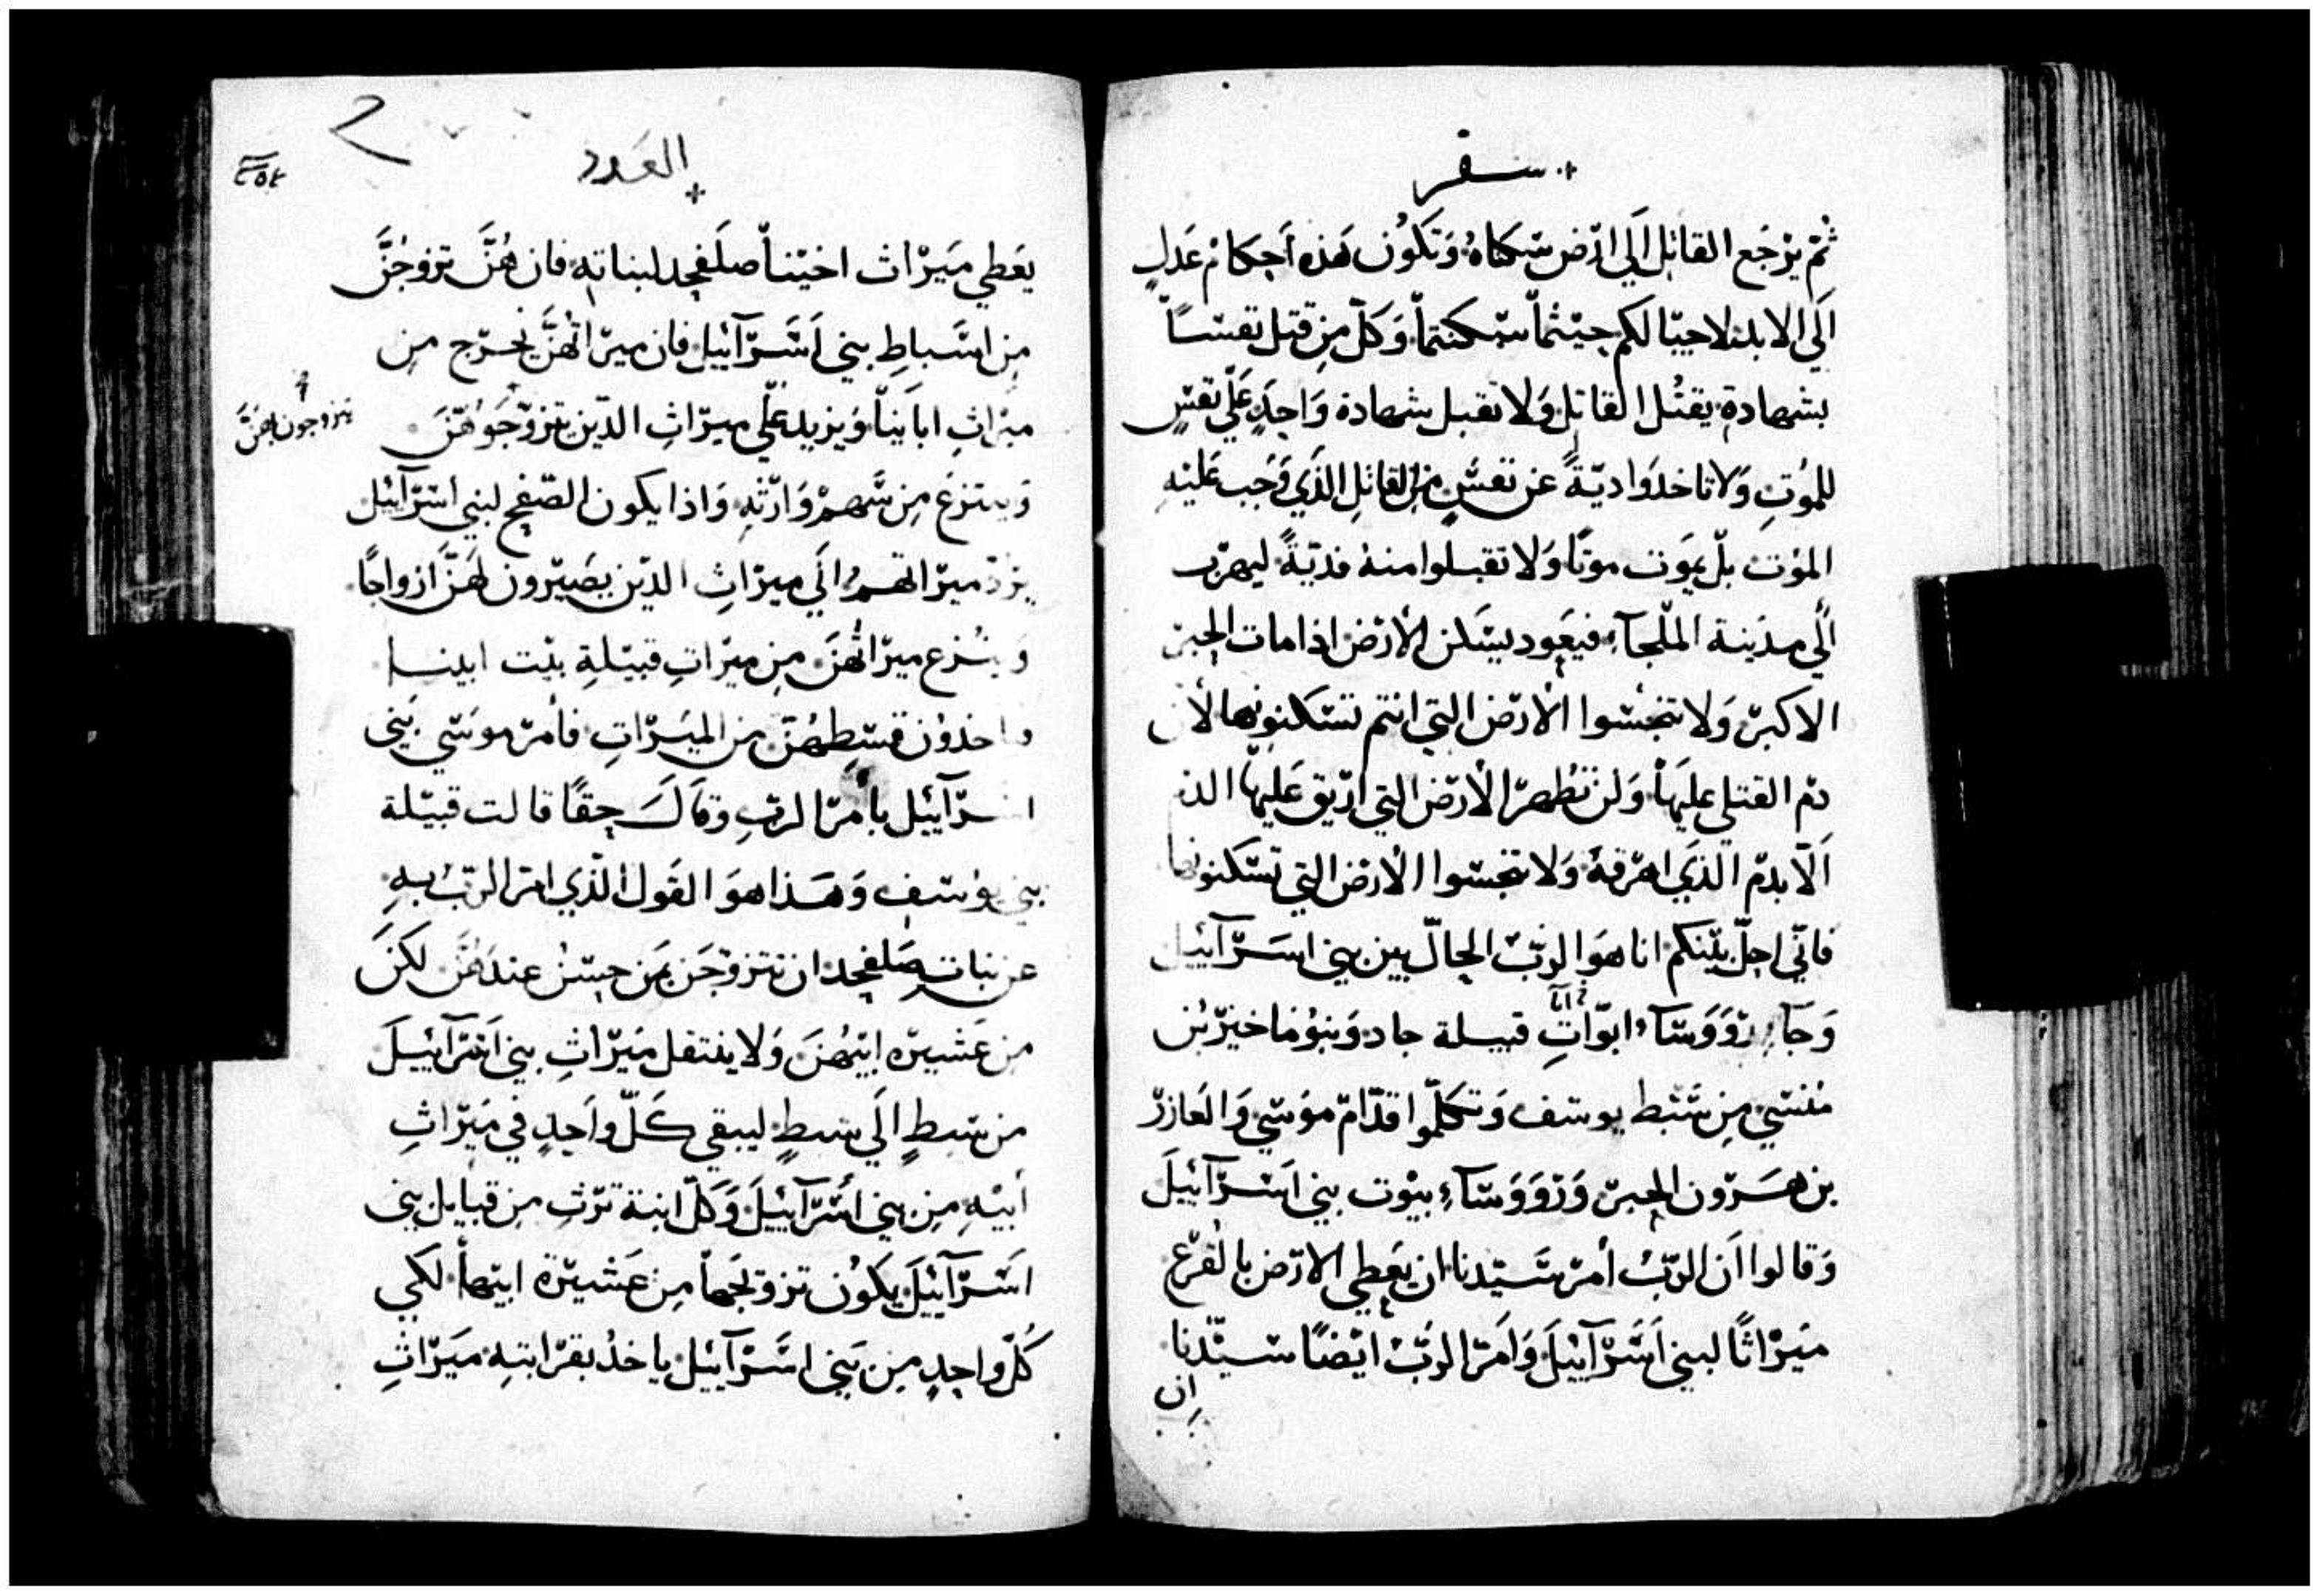 سفر
ثم يرجع القاتل الي ارض سكناه وتكون هذه احكام عدل
الي الابد لاحيالكم حيثما سكنتم وكل من قتل نفسا
بشهادة يقتل القاتل ولا تقبل شهادة واحد علي نفس
للموت ولا تاخدوا دية عن نفس من القاتل الذي وجب عليه
الموت بل يموت موتا ولا تقبلوا منه فدية ليهرب
الي مدينة الملجآء فيعود يسكن الارض اذا مات الحبر
الاكبر ولا تنجسوا الارض التي انتم تسكنونها لان
دم القتلي عليها ولن تطهر الارض التي اريق عليها الدم
الا بدم الذي اهرقه ولا تنجسوا الارض التي تسكنونها
فاني احل بينكم انا هو الرب الحال بين بني اسرآئيل
وجآء رووسآء ابوات قبيلة جاد وبنو ماخير بن
منسي من سبط يوسف وتكلموا قدام موسي والعازر
بن هرون الحبر ورووسآء بيوت بني اسرآئيل
وقالوا ان الرب أمر سيدنا ان يعطي الارض بالقرع
ميراثا لبني اسرآئيل وامر الرب ايضا سيدنا
ان
العدد
٢٥٤
يعطي ميراث اخينا صلفحد لبناته فان هن تزوجن
من اسباط بني اسرآئيل فان ميراثهن يخرج من
ميراث اباينا ويزيد علي ميراث الذين تزوجوهن
يتزوجون بهن
وينتزع من سهم وارثه واذا يكون الصفح لبني اسرآئيل
يزد ميراثهم الي ميراث الذين يصيرون لهن ازواجا
وينزع ميراثهن من ميراث قبيلة بيت ابينا
وياخدون قسطهن من الميراث فأمر موسي بني
اسرآئيل بأمر الرب وقال حقا قالت قبيلة
بني يوسف وهذا هو القول الذي امر الرب به
عن بنات صلفحد ان تتزوجن بمن حسن عندهن لكن
من عشيرة ابيهن ولا ينتقل ميراث بني اسرآئيل
من سبط الي سبط ليبقي كل واحد في ميراث
أبيه من بني اسرآئيل وكل ابنة ترث من قبايل بني
اسرآئيل يكون تزوجها من عشيرة ابيها لكي
كل واحد من بني اسرآئيل ياخد بقرابته ميراث